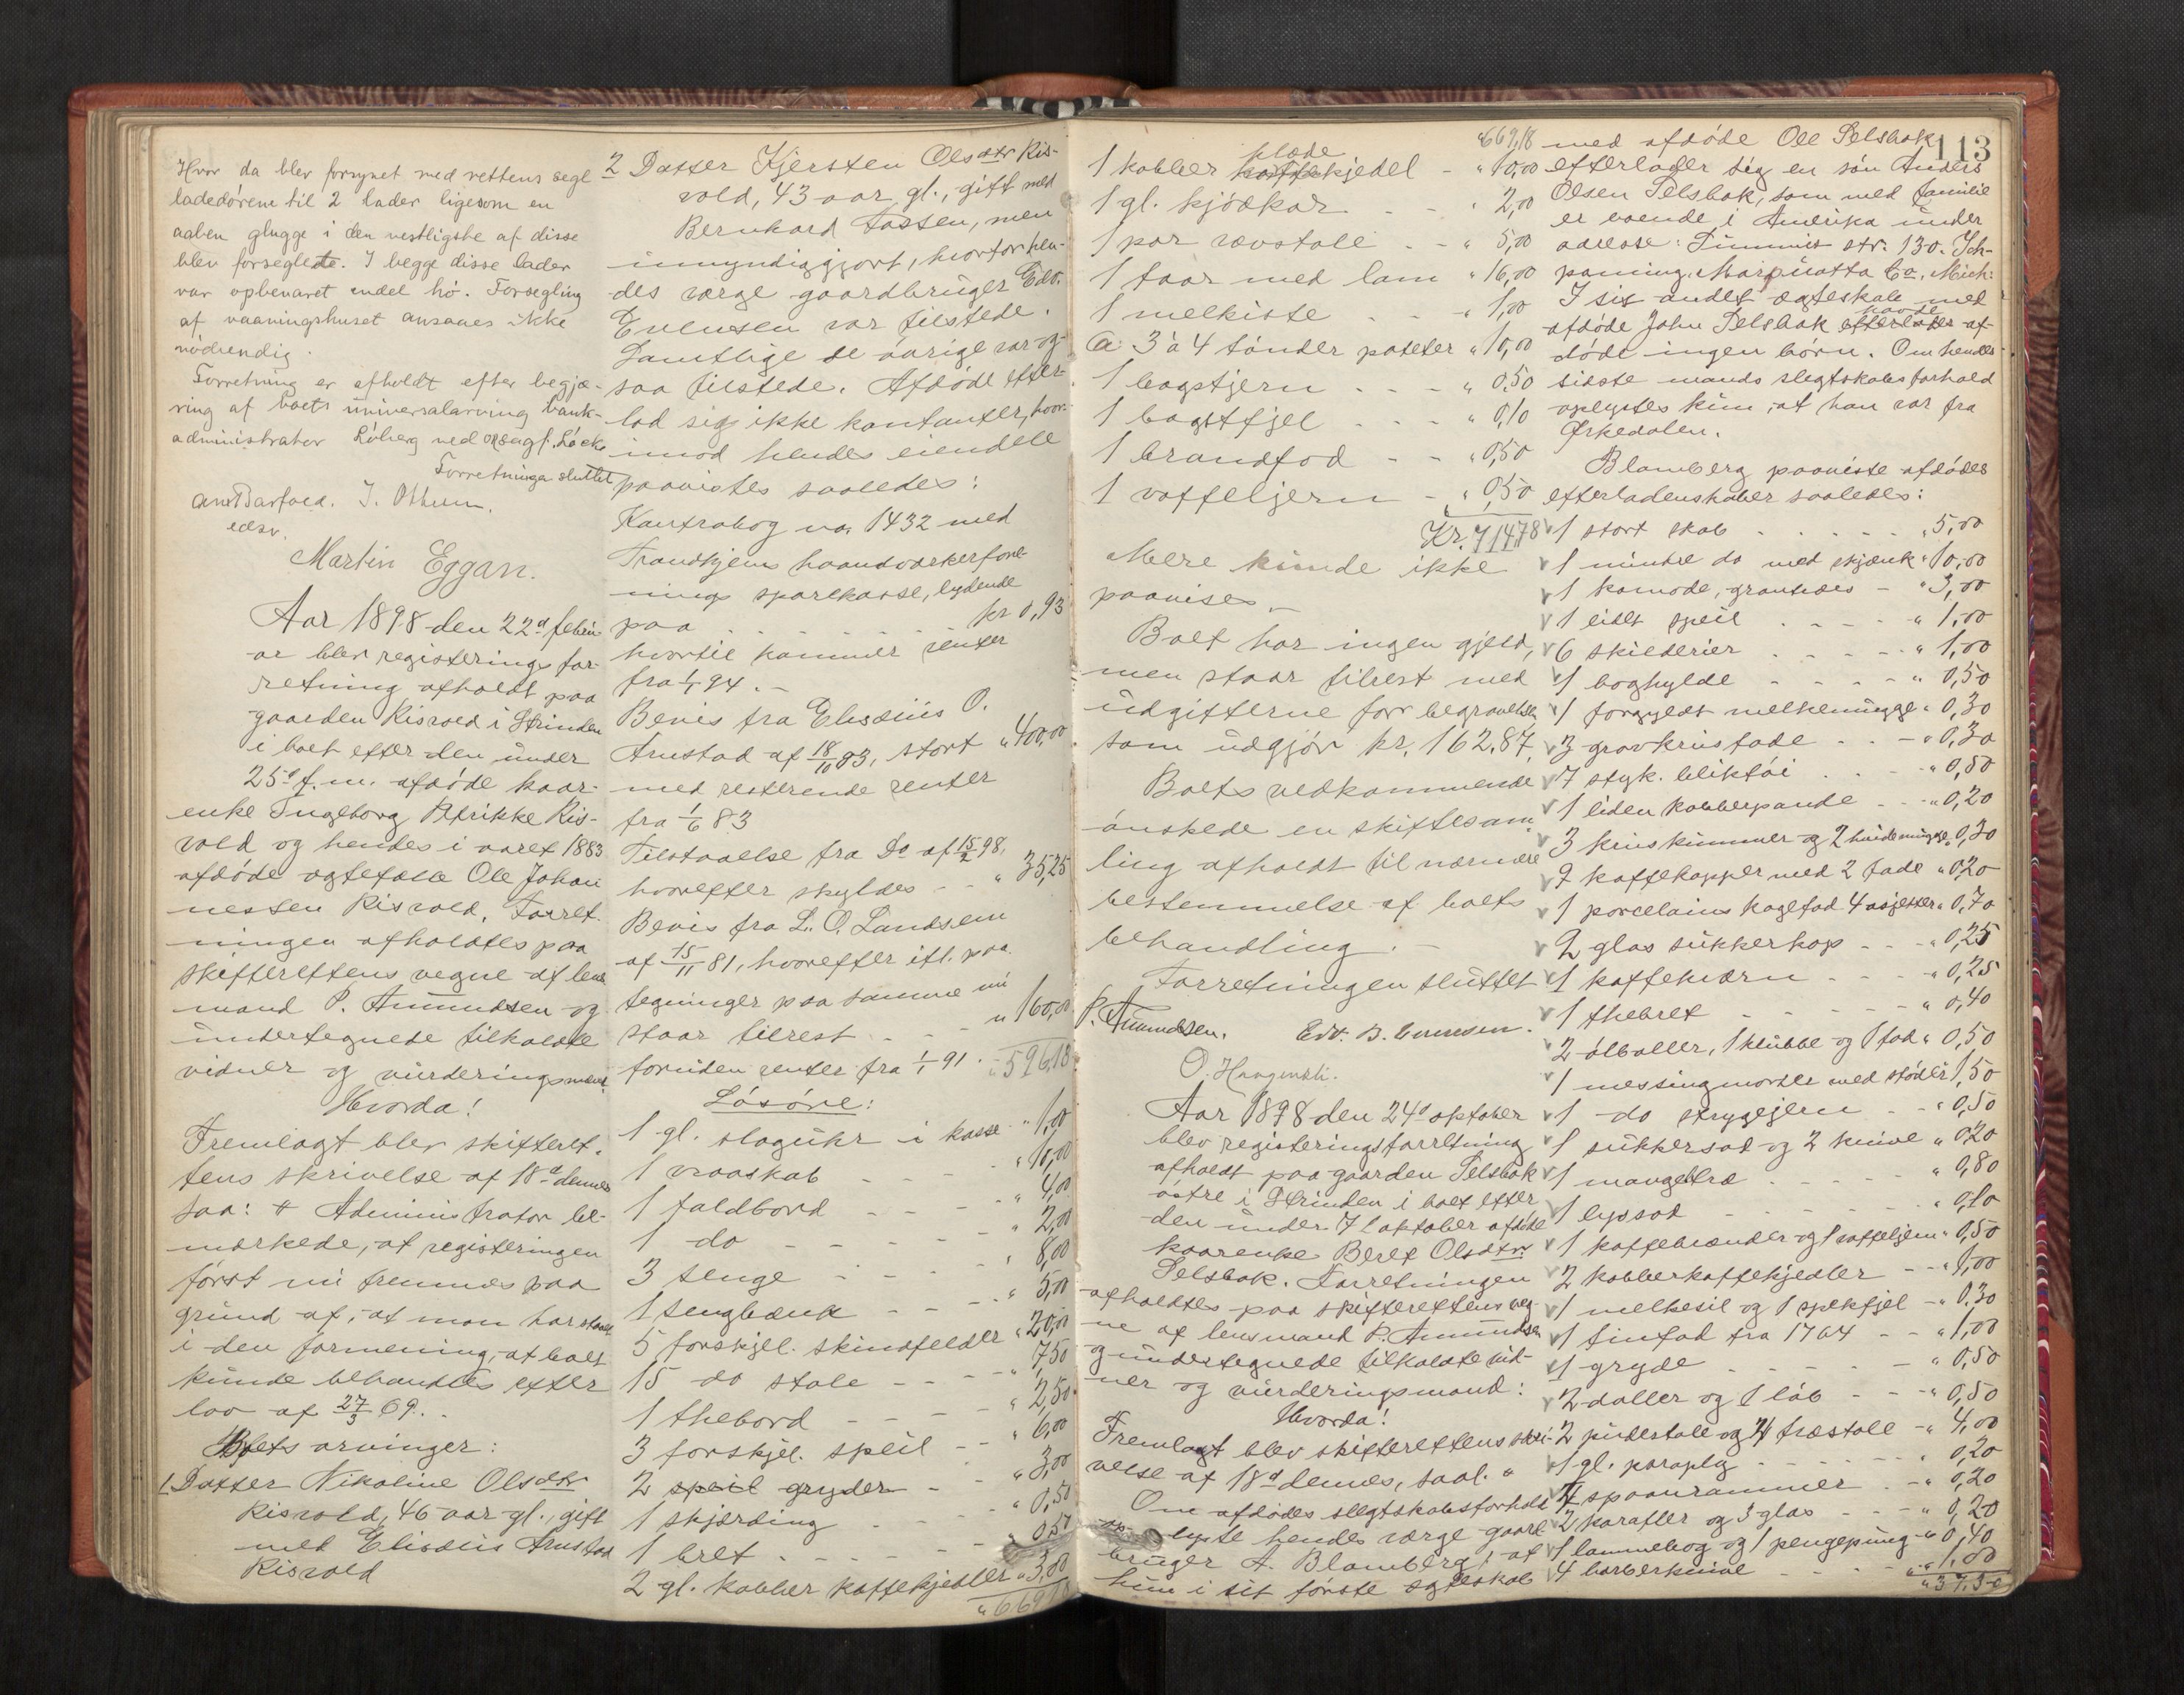 Hvor da blev forsynet med rettens segl
ladedørene til 2 lader ligesom en
aaben glugge i den vestligste af disse
blev forseglede. I begge disse lader
var opbevaret endel hø. Forsegling
af vaaningshuset ansaaes ikke
nødvendig.
Forretning er afholdt efter begjæ-
ring af boets universalarving bank-
administrator Løberg ved
Forretninga sluttet
J. Othum.
edsv.
Martin Eggan.
Aar 1898 den 22d febru-
ar blev registeringsfor-
retning afholdt paa
gaarden Risvold i Strinden
i boet efter den under
25d f.m. afdøde kaar-
enke Ingeborg Perikke Ris-
vold og hendes i aaret 1883
afdøde ægtefælle Ole Johan
nessen Risvold. Forret-
ningen afholdtes paa
skifterettens vegne af lens
mand P. Amundsen og
undertegnede tilkaldte
vidner og vurderingsmænd
Hvorda!
Fremlagt blev skifteret-
tens skrivelse af 18d dennes
saa: # Administrator be-
mærkede, at registeringen
først nu fremmes paa
grund af, at man har staaet
i den formening, at boet
kunde behandles efter
lov af 27/3 69.
Boets arvinger:
1. Datter Nikoline Olsdtr
Risvold, 46 aar gl., gift
med Elisæus Arnstad
Risvold
2 Datter Kjersten Olsdtr Ris-
vold, 43 aar gl., gift med
Bernhard Tossen, men
umyndiggjort, hvorfor hen-
des værge gaardbruger Edv.
Evensen var tilstede.
Samtlige de øvrige var og-
saa tilstede. Afdøde efter-
lod sig ikke kontanter, hvor-
imod hendes eiendele
paavistes saaledes:
Kontrabog no. 1432 med
Trondhjems haandværkerfore-
nings sparekasse, lydende
paa . . . . . . kr 0,93
hvortil kommer renter
fra 1/1 94. -
Bevis fra Elisæus O.
Arnstad af 18/10 83, stort " 400,00
med resterende renter
fra 1/6 83
Tilstaaelse fra Do af 15/2 98,
hvorefter skyldes - - " 35,25
Bevis fra L. O. Landsem
af 15/11 81, hvorefter ifl. paa-
tegninger paa samme nu
staar tilrest - - - " 160,00
foruden renter fra 1/1 91. " 596,18
Løsøre:
1 gl. slaguhr i kasse " 1,00
1 vraaskab - - - " 10,00
1 faldbord - - - " 4,00
1 do - - - - " 2,00
3 senge - - - - " 8,00
1 sengbænk - - - " 5,00
5 forskjel. skindfelder " 20,00
15 do stole - - - " 7,50
1 thebord - - - - " 2,50
3 forskjel. speil - - " 6,00
2 speil gryder - - " 3,00
1 skjærding - - - " 0,50
1 bret - - - - " 0,50
2 gl. kobber kaffekjedler " 3,00
" 669,18
" 669,18
plade
1 kobber kaffekjedel - " 10,00
1 gl. kjødkar - - " 2,00
1 par vævstole - - " 5,00
1 faar med lam " 16,00
1 melkiste - - " 1,00
a. 3 à 4 tønder poteter " 10,00
1 bagstjern - - - " 0,50
1 bagstfjel - - - " 0,10
1 brandfod - - " 0,50
1 vaffeljern - " 0,50
Kr. 714,78
Mere kunde ikke
paavises. -
Boet har ingen gjeld,
men staar tilrest med
udgifterne for begravelsen
som udgjør kr. 162,87.
Boets vedkommende
ønskede en skiftesam-
ling afholdt til nærmere
bestemmelse af boets
behandling. -
Forretningen sluttet
P. Amundsen. Edv. B. Evensen.
O. Haugmæli.
Aar 1898 den 24d oktober
blev registeringsforretning
afholdt paa gaarden Selsbak
østre i Strinden i boet efter
den under 7d oktober afdøde
kaarenke Beret Olsdtr
Selsbak. Forretningen
afholdtes paa skifterettens veg-
ne af lensmand P. Amundsen
og undertegnede tilkaldte vid-
ner og vurderingsmænd:
Hvorda!
Fremlagt blev skifterettens skri-
velse af 18d dennes, saal. "
Om afdødes slegtskabsforhold
oplyste hendes værge gaard-
bruger A. Blomberg, at
hun i sit første ægteskab
113
med afdøde Ole Selsbak
efterlader sig en søn Anders
Olsen Selsbak, som med familie
er boende i Amerika under
adresse: Summit str. 130. Ish-
peming. Marquatta Co. Mich.
I sit andet ægteskab med
havde
afdøde John Selsbak efterlater af-
døde ingen børn. Om hendes
sidste mands slegtskabsforhold
oplystes kun, at han var fra
Ørkedalen.
Blomberg paaviste afdødes
efterladenskaber saaledes:
1 stort skab . . . . . " 5,00
1 mindre do med skjænk " 10,00
1 komode, grantræs - " 3,00
1 lidet speil - - - - " 1,00
6 skilderier - - - - " 1,00
1 boghylde - - - - " 0,50
1 forgyldt melkemugge " 0,30
3 gravkrusfade - - - " 0,30
7 styk. bliktøi - - - " 0,50
1 liden kobberpande - - " 0,20
3 kruskummer og 2 hvidemugge " 0,30
2 kaffekopper med 2 fade " 0,20
1 porcelains kagefad 4 asjetter " 0,70
2 glas sukkerkop - - - " 0,25
1 kaffekværn - - - - " 0,25
1 thebret - - - - - " 0,40
2 ølboller, 1 klubbe og 1 fad " 0,50
1 messingmorter med støder 1,50
1 do strygejern - - " 0,50
1 sukkersax og 2 knive " 0,20
1 mangeltræ - - - - " 0,80
1 lyssax - - - - - " 0,10
1 kaffebrænder og 1 vaffeljern " 0,50
2 kobberkaffekjedler - - " 1,00
1 melkesil og 1 spekfjel - " 0,30
1 tinfad fra 1764 - - " 1,00
1 gryde - - - - - " 0,50
2 daller og 1 løb - - " 0,50
2 pudestole og 4 træstole - " 4,00
1 gl. paraply - - - - " 0,20
4 spaanrammer - - " 0,20
2 karafler og 3 glas - - " 0,20
1 lommebog og 1 pengepung - " 0,40
4 barberknive - - - " 1,00
" 37,30